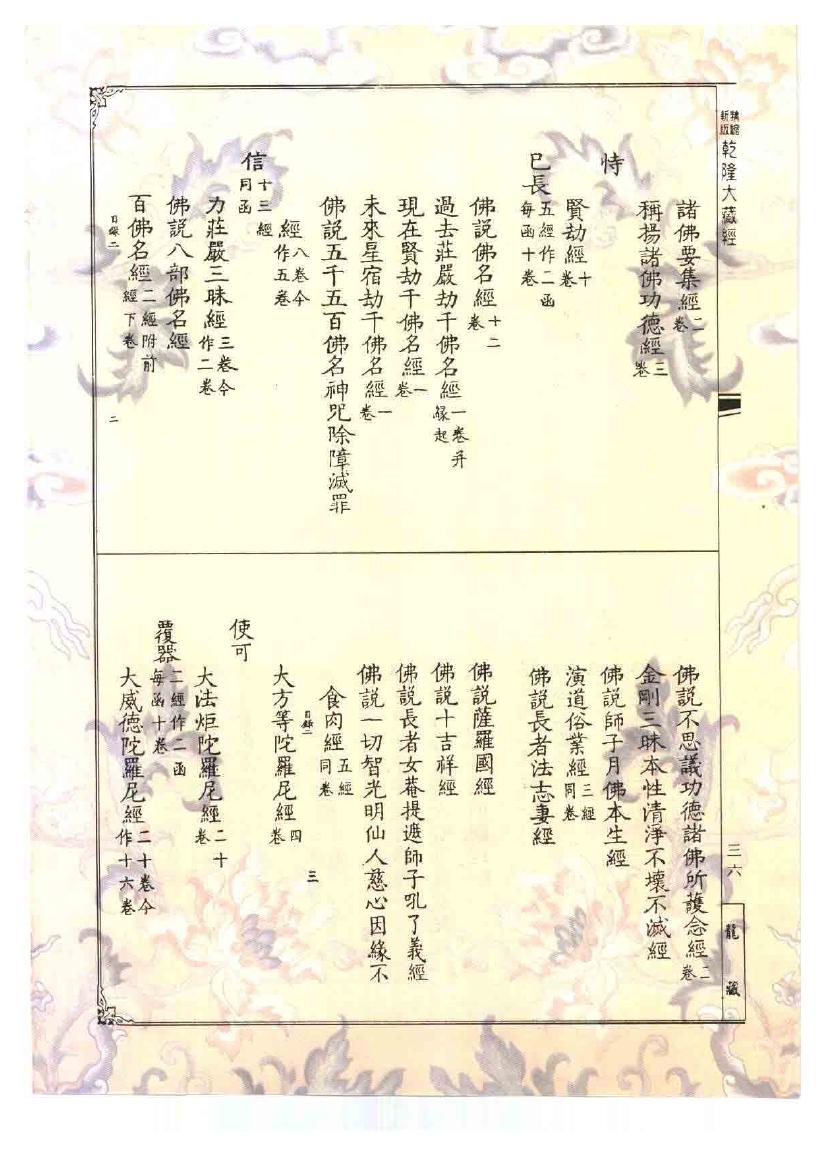 精縮
新版
乾隆大藏經
諸佛要集經二卷
稱揚諸佛功德經三卷
恃
賢劫經十卷
已長五經作二函每函十卷
佛說佛名經十二卷
過去莊嚴劫千佛名經一卷并緣起
現在賢劫千佛名經一卷
未來星宿劫千佛名經一卷
佛說五千五百佛名神咒除障滅罪
經八卷今作五卷
信十三經同函
力莊嚴三昧經三卷今作二卷
佛說八部佛名經
百佛名經二經附前經下卷
目錄二
二
佛說不思議功德諸佛所護念經二卷
金剛三昧本性清淨不壞不滅經
佛說師子月佛本生經
演道俗業經三經同卷
佛說長者法志妻經
佛說薩羅國經
佛說十吉祥經
佛說長者女菴提遮師子吼了義經
佛說一切智光明仙人慈心因緣不
食肉經五經同卷
目錄二
三
大方等陀羅尼經四卷
使可
大法炬陀羅尼經二十卷
覆器二經作二函每函十卷
大威德陀羅尼經二十卷今作十六卷
三六
龍藏